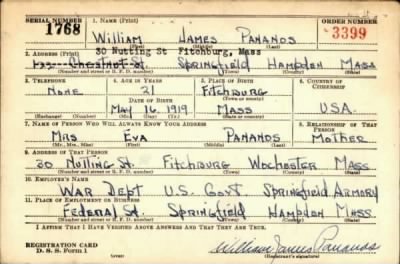 SERIAL NUMBER 1. NAME (Print) ORDER NUMBER
1768 William James Pananos 3399
(First) (Middle) (Last)
30 Nutting St Fitchburg, Mass
2. ADDRESS (Print)
Chestnut St. Springfield Hampden Mass
(Number and street or R. F. D. number) (Town) (County) (State)
3. TELEPHONE 4. AGE IN YEARS 5. PLACE OF BIRTH 6. COUNTRY OF CITIZENSHIP
None 21 Fitchburg
DATE OF BIRTH (Town or county)
May 16, 1919 Mass U.S.A.
(Exchange) (Number) (Mo.) (Day) (Yr.) (State or country)
7. NAME OF PERSON WHO WILL ALWAYS KNOW YOUR ADDRESS 8. RELATIONSHIP OF THAT PERSON
Mrs Eva Pananos Mother
(Mr., Mrs., Miss) (First) (Middle) (Last)
9. ADDRESS OF THAT PERSON
30 Nutting St. Fitchburg Wochester Mass
(Number and street or R. F. D. number) (Town) (County) (State)
10. EMPLOYER'S NAME
War Dept U.S. Govt Springfield Armory
11. PLACE OF EMPLOYMENT OR BUSINESS
Federal St. Springfield Hampden Mass.
(Number and street or R. F. D. number) (Town) (County) (State)
I AFFIRM THAT I HAVE VERIFIED ABOVE ANSWERS AND THAT THEY ARE TRUE.
REGISTRATION CARD
D. S. S. Form 1 William James Pananos
(Registrant's signature)